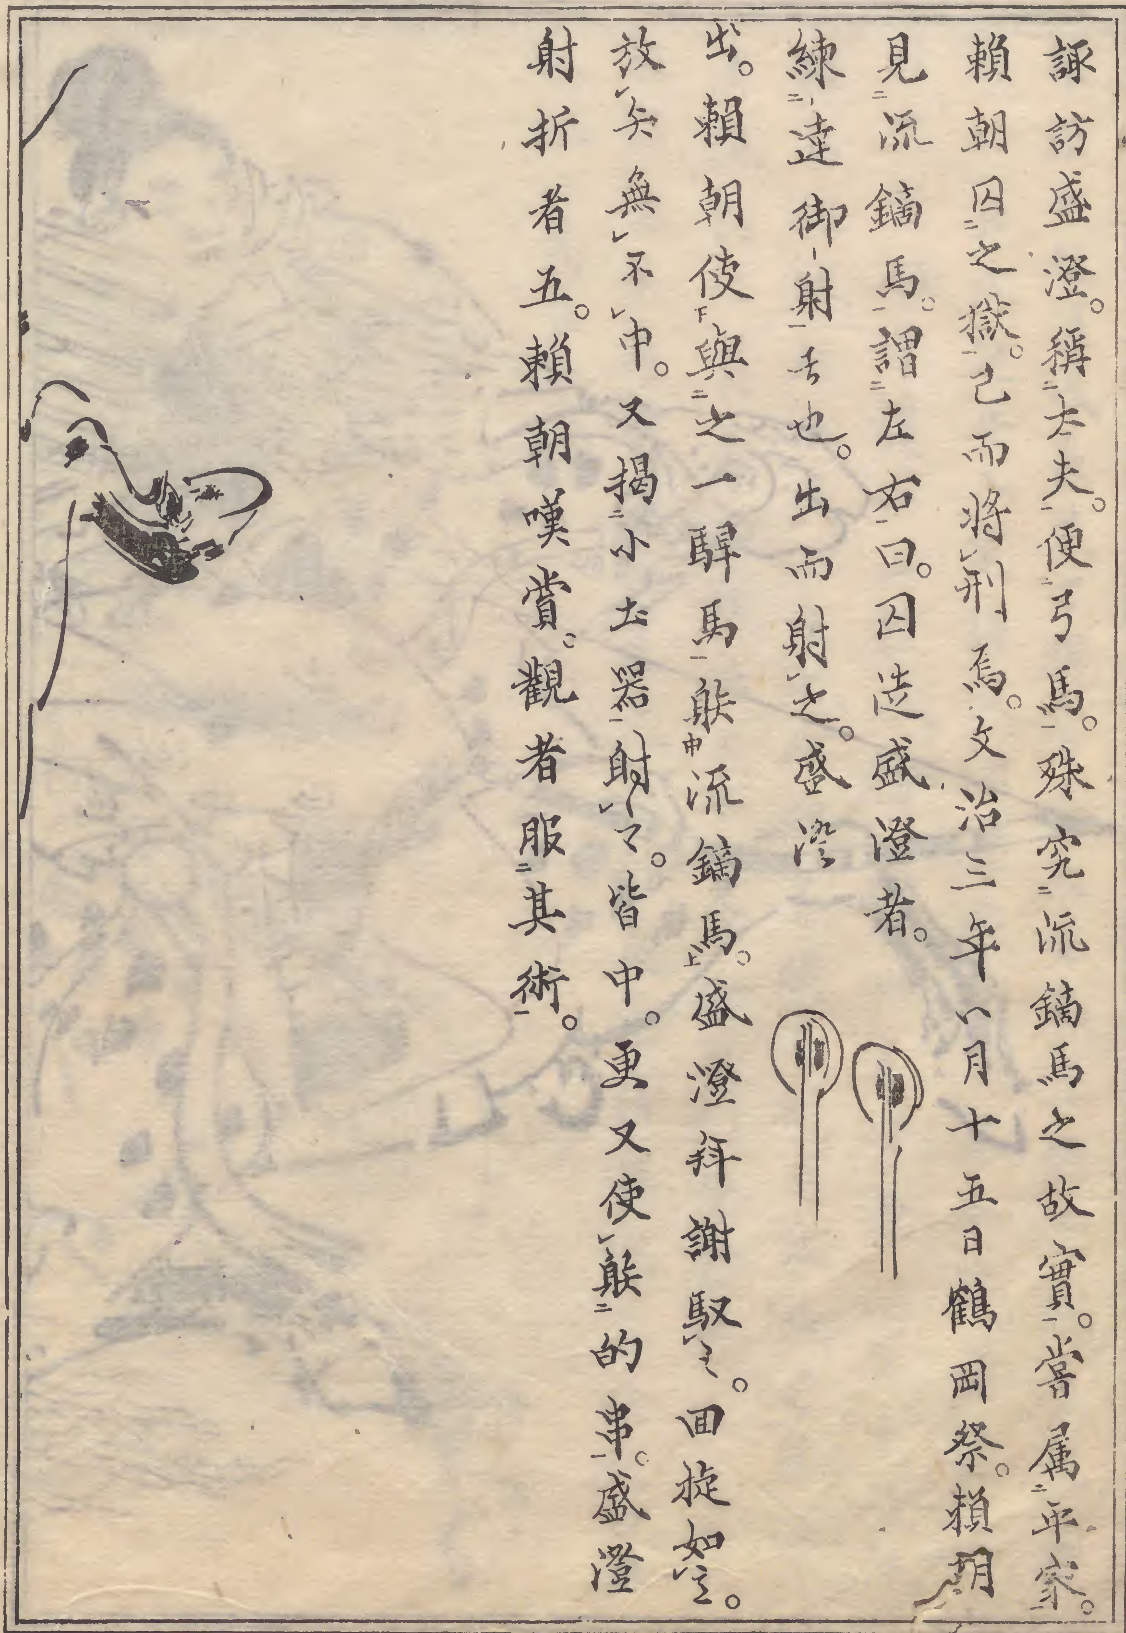 諏訪盛澄。稱大夫。便弓馬。殊究流鏑馬之故實。嘗属平家。
頼朝囚之獄。已而將刑焉。文治三年八月十五日鶴岡祭。頼朝
見流鏑馬。謂左右曰。囚徒盛澄者。
練達御射者也。出而射之。盛澄
出。頼朝使與之一駻馬射流鏑馬。盛澄拜謝馭之。回旋如意。
放矢無不中。又掲小土器射之。皆中。更又使射的串。盛澄
射折者五。頼朝嘆賞。觀者服其術。